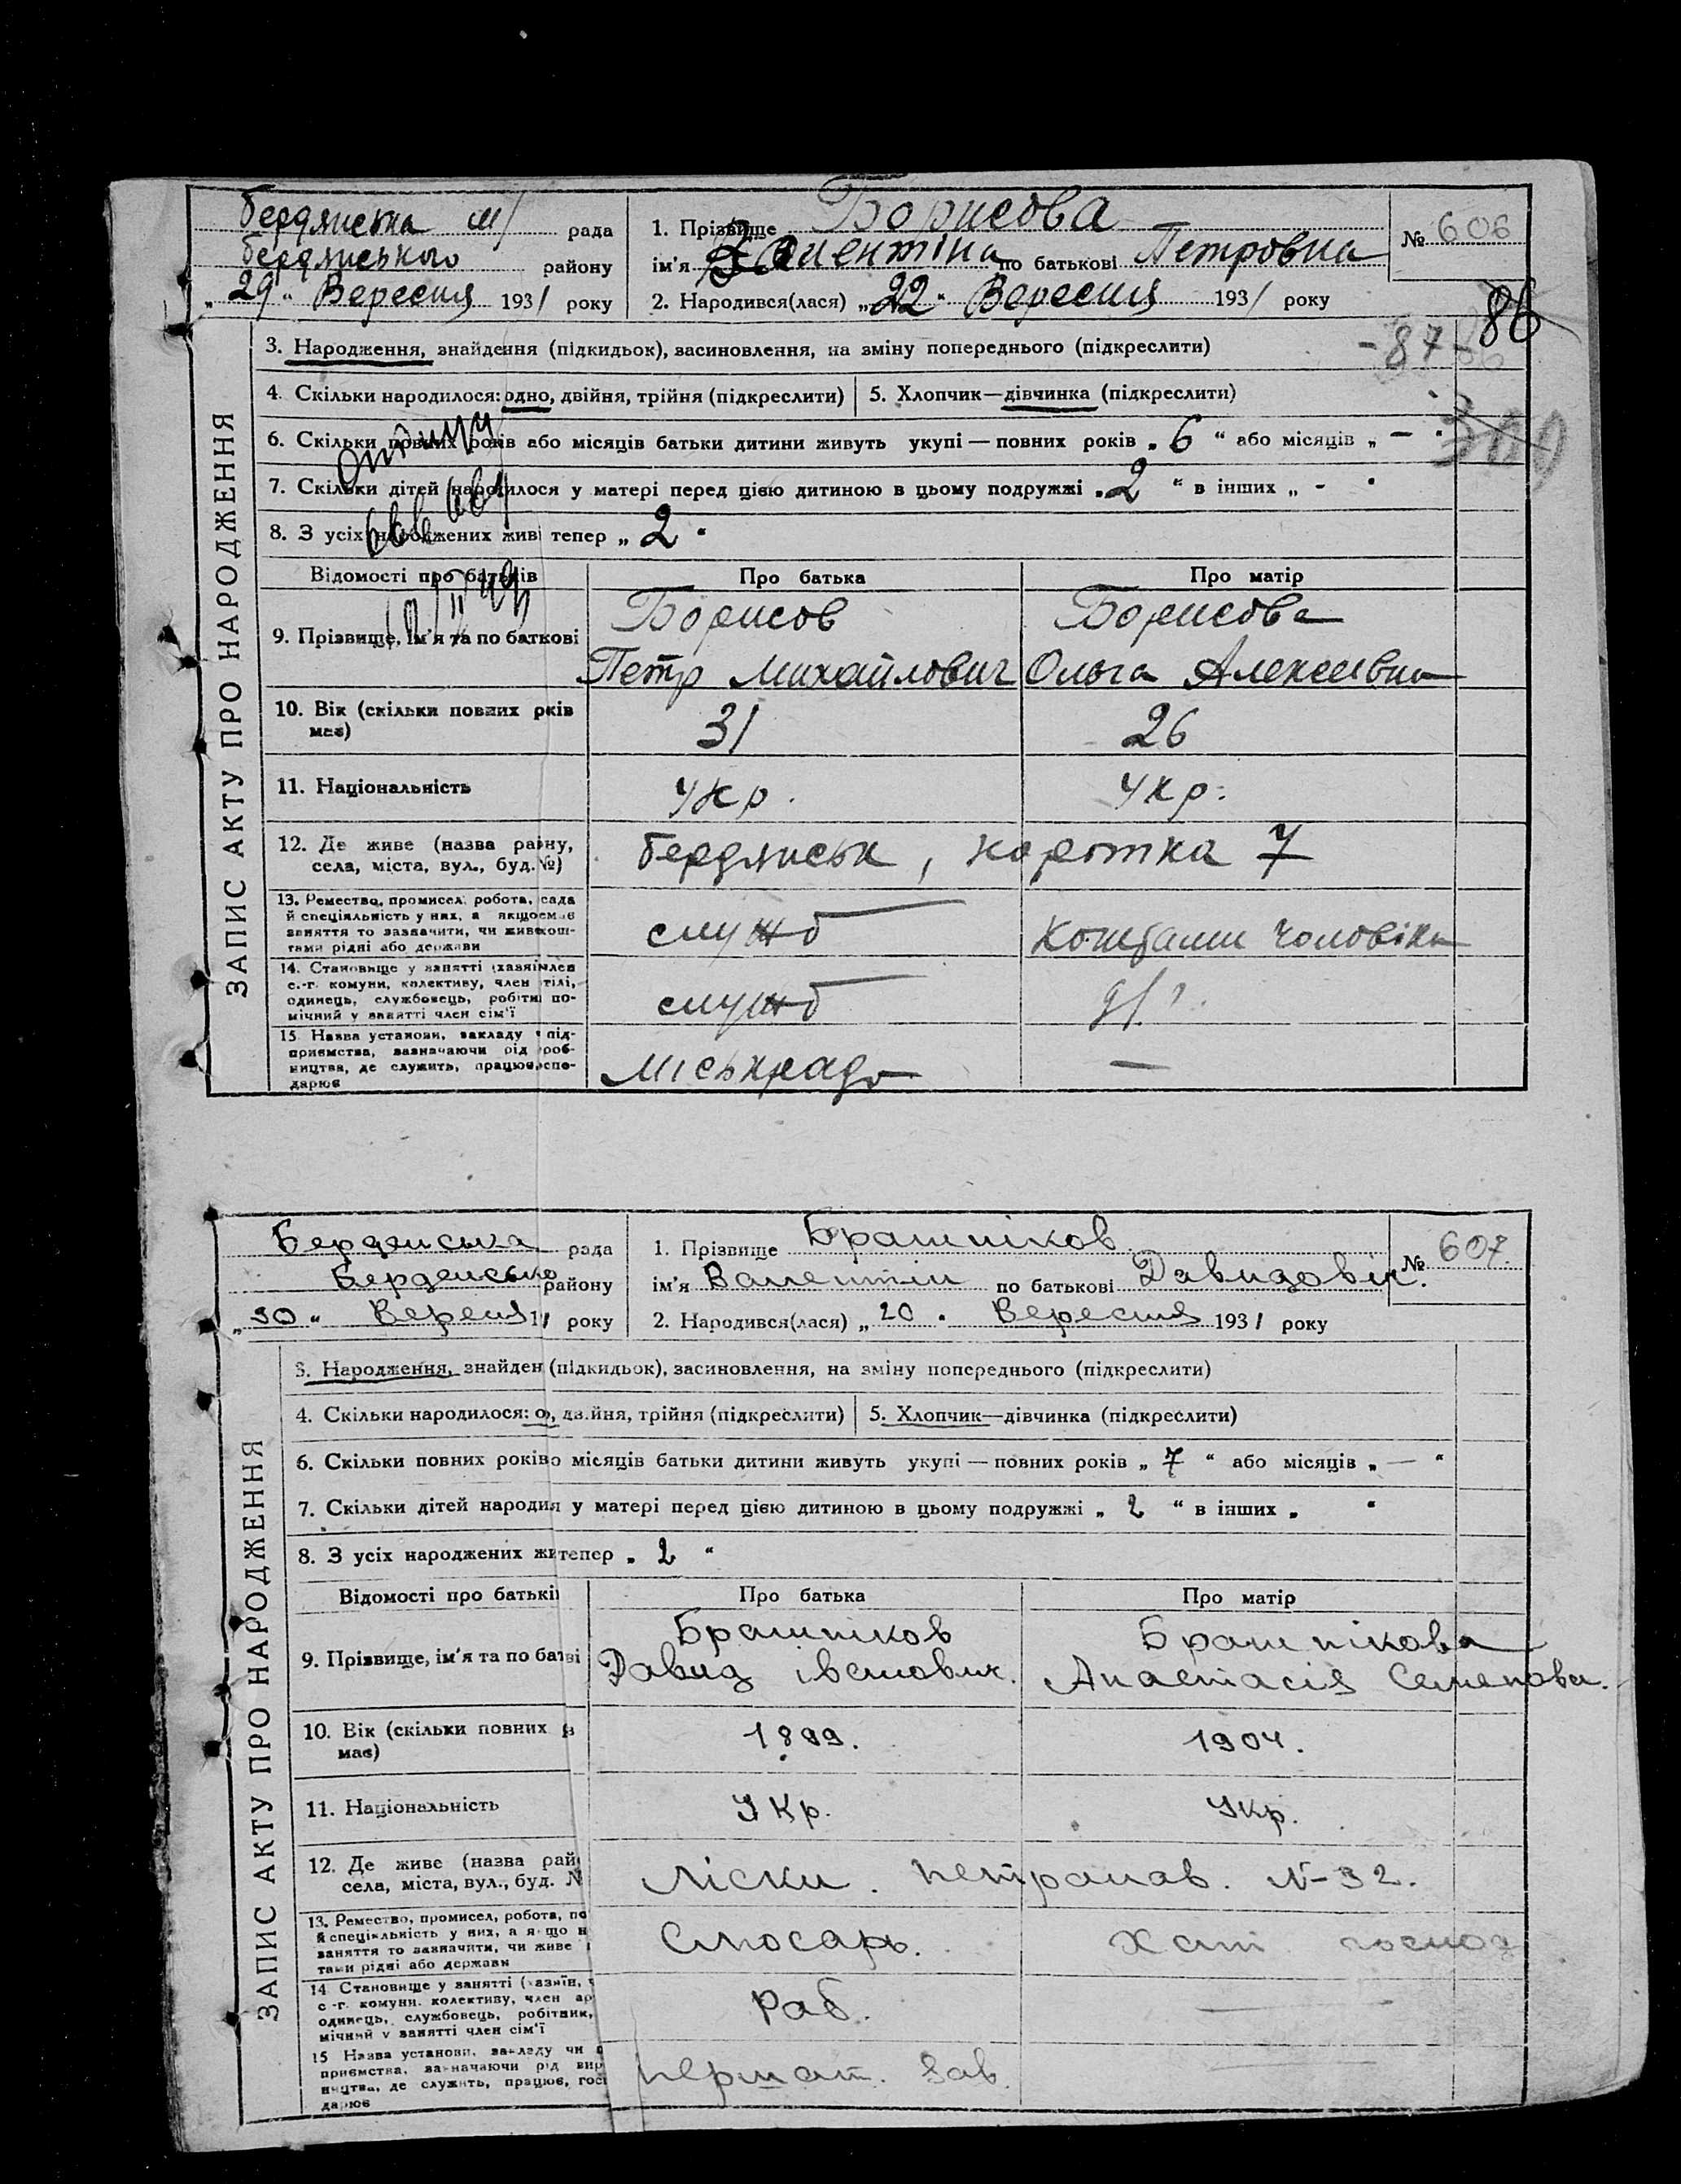 Бердянська м/ рада
Бердянського району
„29“ Вересня 1931 року
1. Прізвище Борисова
ім'я Валентіна по батькові Петровна
2. Народився(лася) „22“ Вересня 1931 року
№ 606
86
-87-
3. Народження, знайдення (підкидьок), засиновлення, на зміну попереднього (підкреслити)
4. Скільки народилося: одно, двійня, трійня (підкреслити)
5. Хлопчик—дівчинка (підкреслити)
300
6. Скільки повних років або місяців батьки дитини живуть укупі — повних років „6“ або місяців „—“
7. Скільки дітей народилося у матері перед цією дитиною в цьому подружжі „2“ в інших „-“
8. З усіх народжених живі тепер „2“
ЗАПИС АКТУ ПРО НАРОДЖЕННЯ
Відомості про батьків
Про батька
Про матір
9. Прізвище, ім'я та по баткові
Борисов
Петр Михайлович
Борисова
Ольга Алексеевна
10. Вік (скільки повних рків
має)
31
26
11. Національність
Укр.
Укр.
12. Де живе (назва райну,
села, міста, вул., буд. №)
Бердянськ, коротка 7
13. Ремество, промисел, робота, сада
й спеціяльність у них, а якщо має
заняття то зазначити, чи живе кош-
тами рідні або держави
служб
Коштами чоловіка
14. Становище у занятті (хазяїн, член
с.-г. комуни, колективу, член тілі,
одинець, службовець, робітн по-
мічний у занятті член сім'ї
служб
15 Назва установи, закладу під-
приємства, зазначаючи рід роб-
ництва, де служить, працює, спо-
дарює
Міськрада
—
Берденська рада
Берденсько району
„30“ Вересня 1 року
1. Прізвище Брашніков
ім'я Валентін по батькові Давидовіч.
2. Народився(лася) „20“ Вересня 1931 року
№ 607.
3. Народження, знайден (підкидьок), засиновлення, на зміну попереднього (підкреслити)
4. Скільки народилося: о, двійня, трійня (підкреслити)
5. Хлопчик—дівчинка (підкреслити)
6. Скільки повних років о місяців батьки дитини живуть укупі — повних років „7“ або місяців „—“
7. Скільки дітей народия у матері перед цією дитиною в цьому подружжі „2“ в інших „ “
8. З усіх народжених жи тепер „2“
ЗАПИС АКТУ ПРО НАРОДЖЕННЯ
Відомості про батькі
Про батька
Про матір
9. Прізвище, ім'я та по батві
Брашніков
Давид іванович.
Брашнікова
Анастасія Семенова.
10. Вік (скільки повних р
має)
1899.
1904.
11. Національність
Укр.
Укр.
12. Де живе (назва рай
села, міста, вул., буд. №
Ліски. Петрапав. N-32.
13. Ремество, промисел, робота, по
й спеціяльність у них, а якщо н
заняття то зазначити, чи живе
тами рідні або держави
Слюсарь.
Хат. господ
14 Становище у занятті (хазяїн, ч
с.-г. комуни, колективу, член ар
одинець, службовець, робітник,
мічний у занятті член сім'ї
Раб.
—
15 Назва установи, закладу чи п
приємства, зазначаючи рід вир
ництва, де служить, працює, гос
дарює
Першат. Зав.